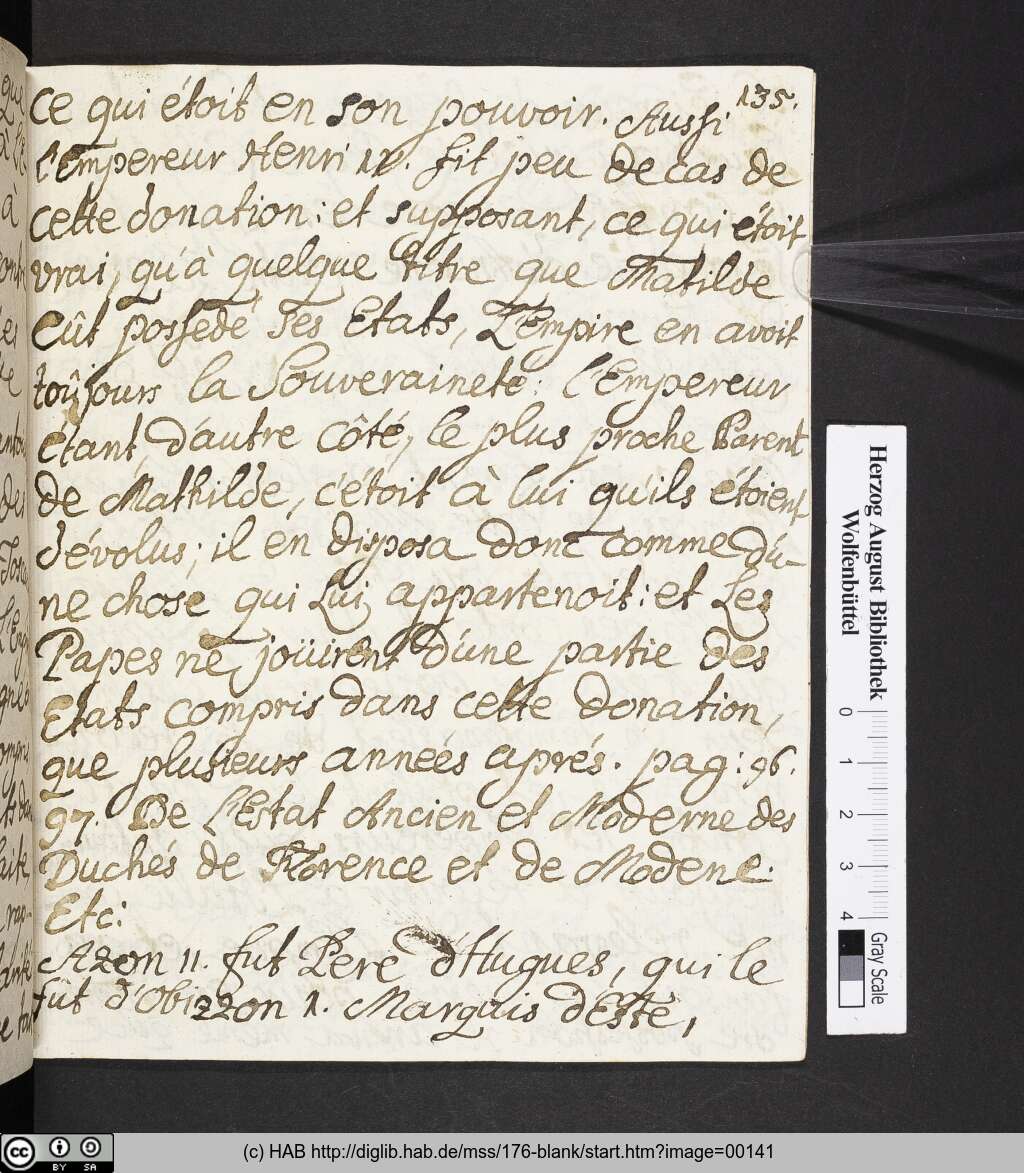 135.
ce qui étoit en son pouvoir. Aussi
l'Empereur Henri IV. fit peu de cas de
cette donation: et supposant, ce qui étoit
vrai, qu'à quelque titre que Matilde
eût possedé ses Etats, L'Empire en avoit
toûjours la Souveraineté: l'Empereur
étant, d'autre côté, le plus proche Parent
de Mathilde, c'étoit à lui qu'ils étoient
dévolus; il en disposa donc comme d'u-
ne chose qui Lui appartenoit: et Les
Papes ne joüirent d'une partie des
Etats compris dans cette donation,
que plusieurs années aprés. pag: 96.
97. De L'Estat Ancien et Moderne des
Duchés de Florence et de Modene.
Etc:
Azon II. fut Pere d'Hugues, qui le
fût d'Obizzon I. Marquis d'Este,
Herzog August Bibliothek
Wolfenbüttel
0 1 2 3 4
Gray Scale
cc BY SA
(c) HAB http://diglib.hab.de/mss/176-blank/start.htm?image=00141